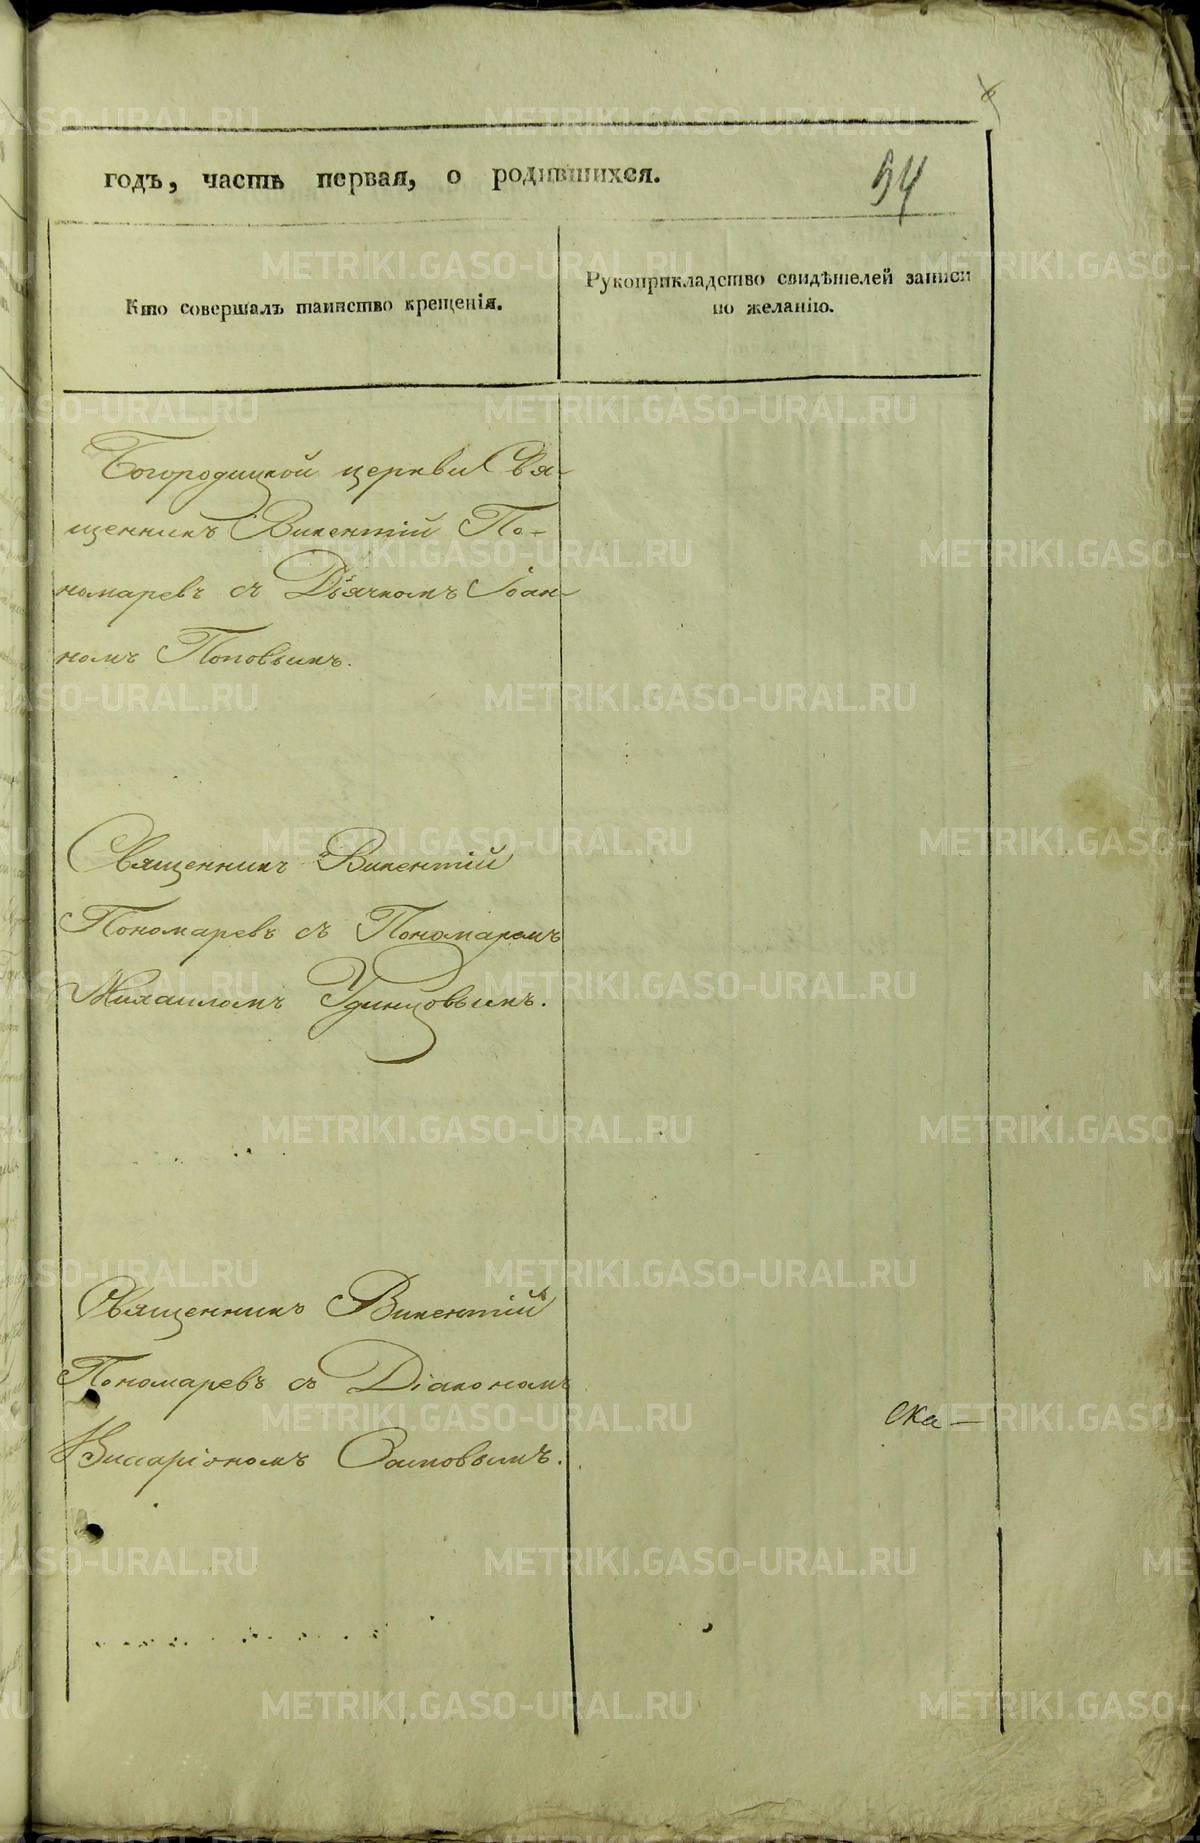 годъ, часть первая, о родившихся.
54
Кто совершалъ таинство крещенія.
Рукоприкладство свидѣтелей записи
по желанію.
Богородицкой церкви Свя-
щенникъ Викентій По-
номаревъ съ Дьячкомъ Іоан-
номъ Поповымъ.
Священникъ Викентій
Пономаревъ съ Пономаремъ
Михаиломъ Удинцовымъ.
Священникъ Викентій
Пономаревъ съ Діакономъ
Висаріономъ
ска-
METRIKI.GASO-URAL.RU